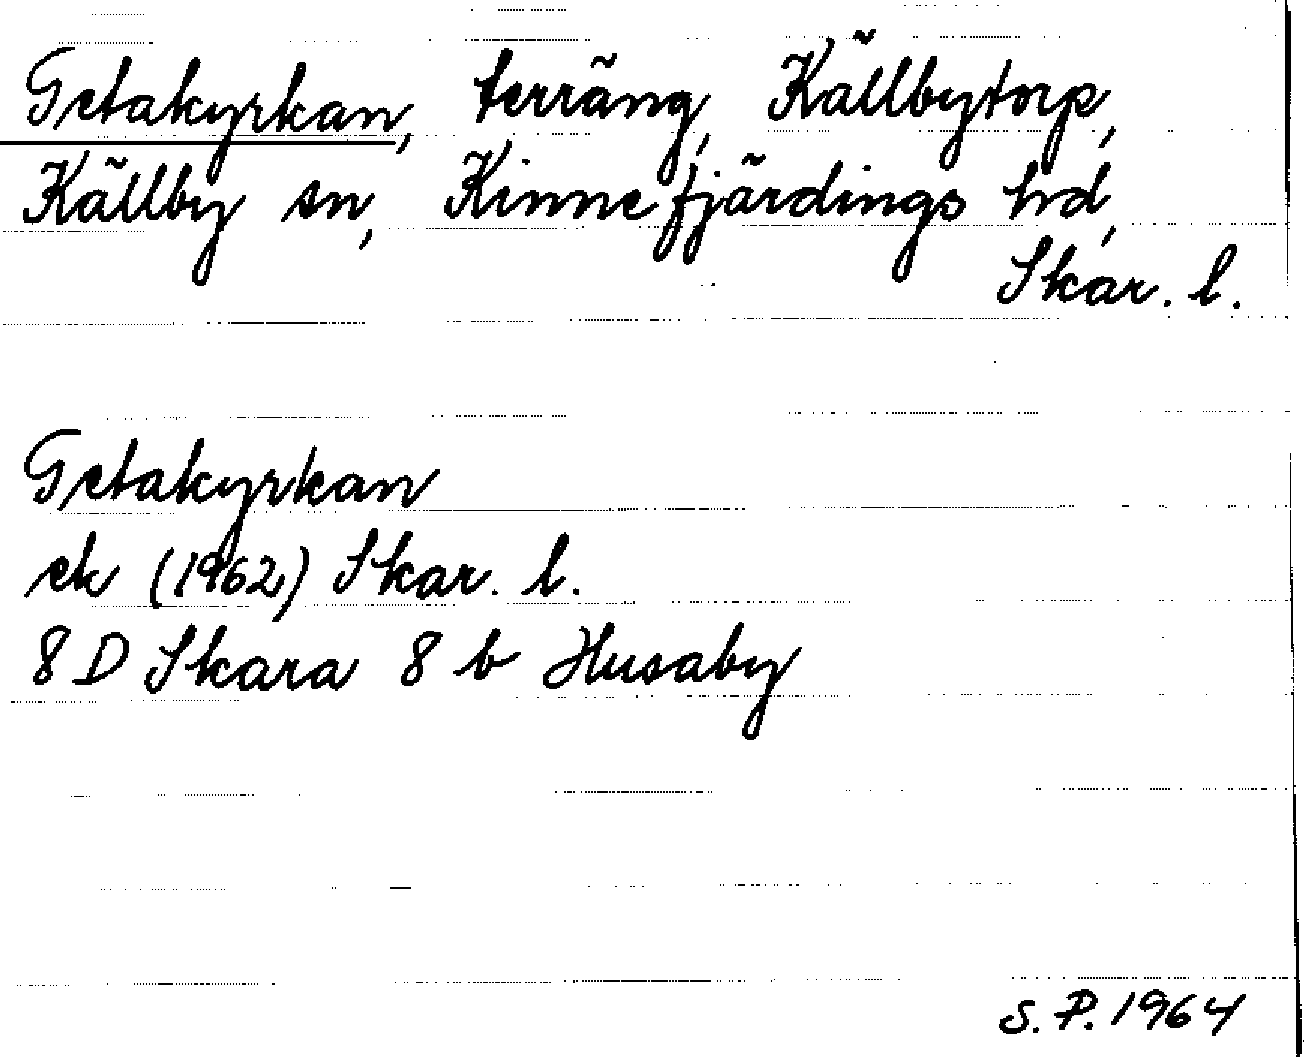 Getakyrkan, terräng, Källbytorp,
Källby sn, Kinnefjärdings hd,
Skar. l.
Getakyrkan
ek (1962) Skar. l.
8 D Skara 8 b Husaby
S. P. 1964